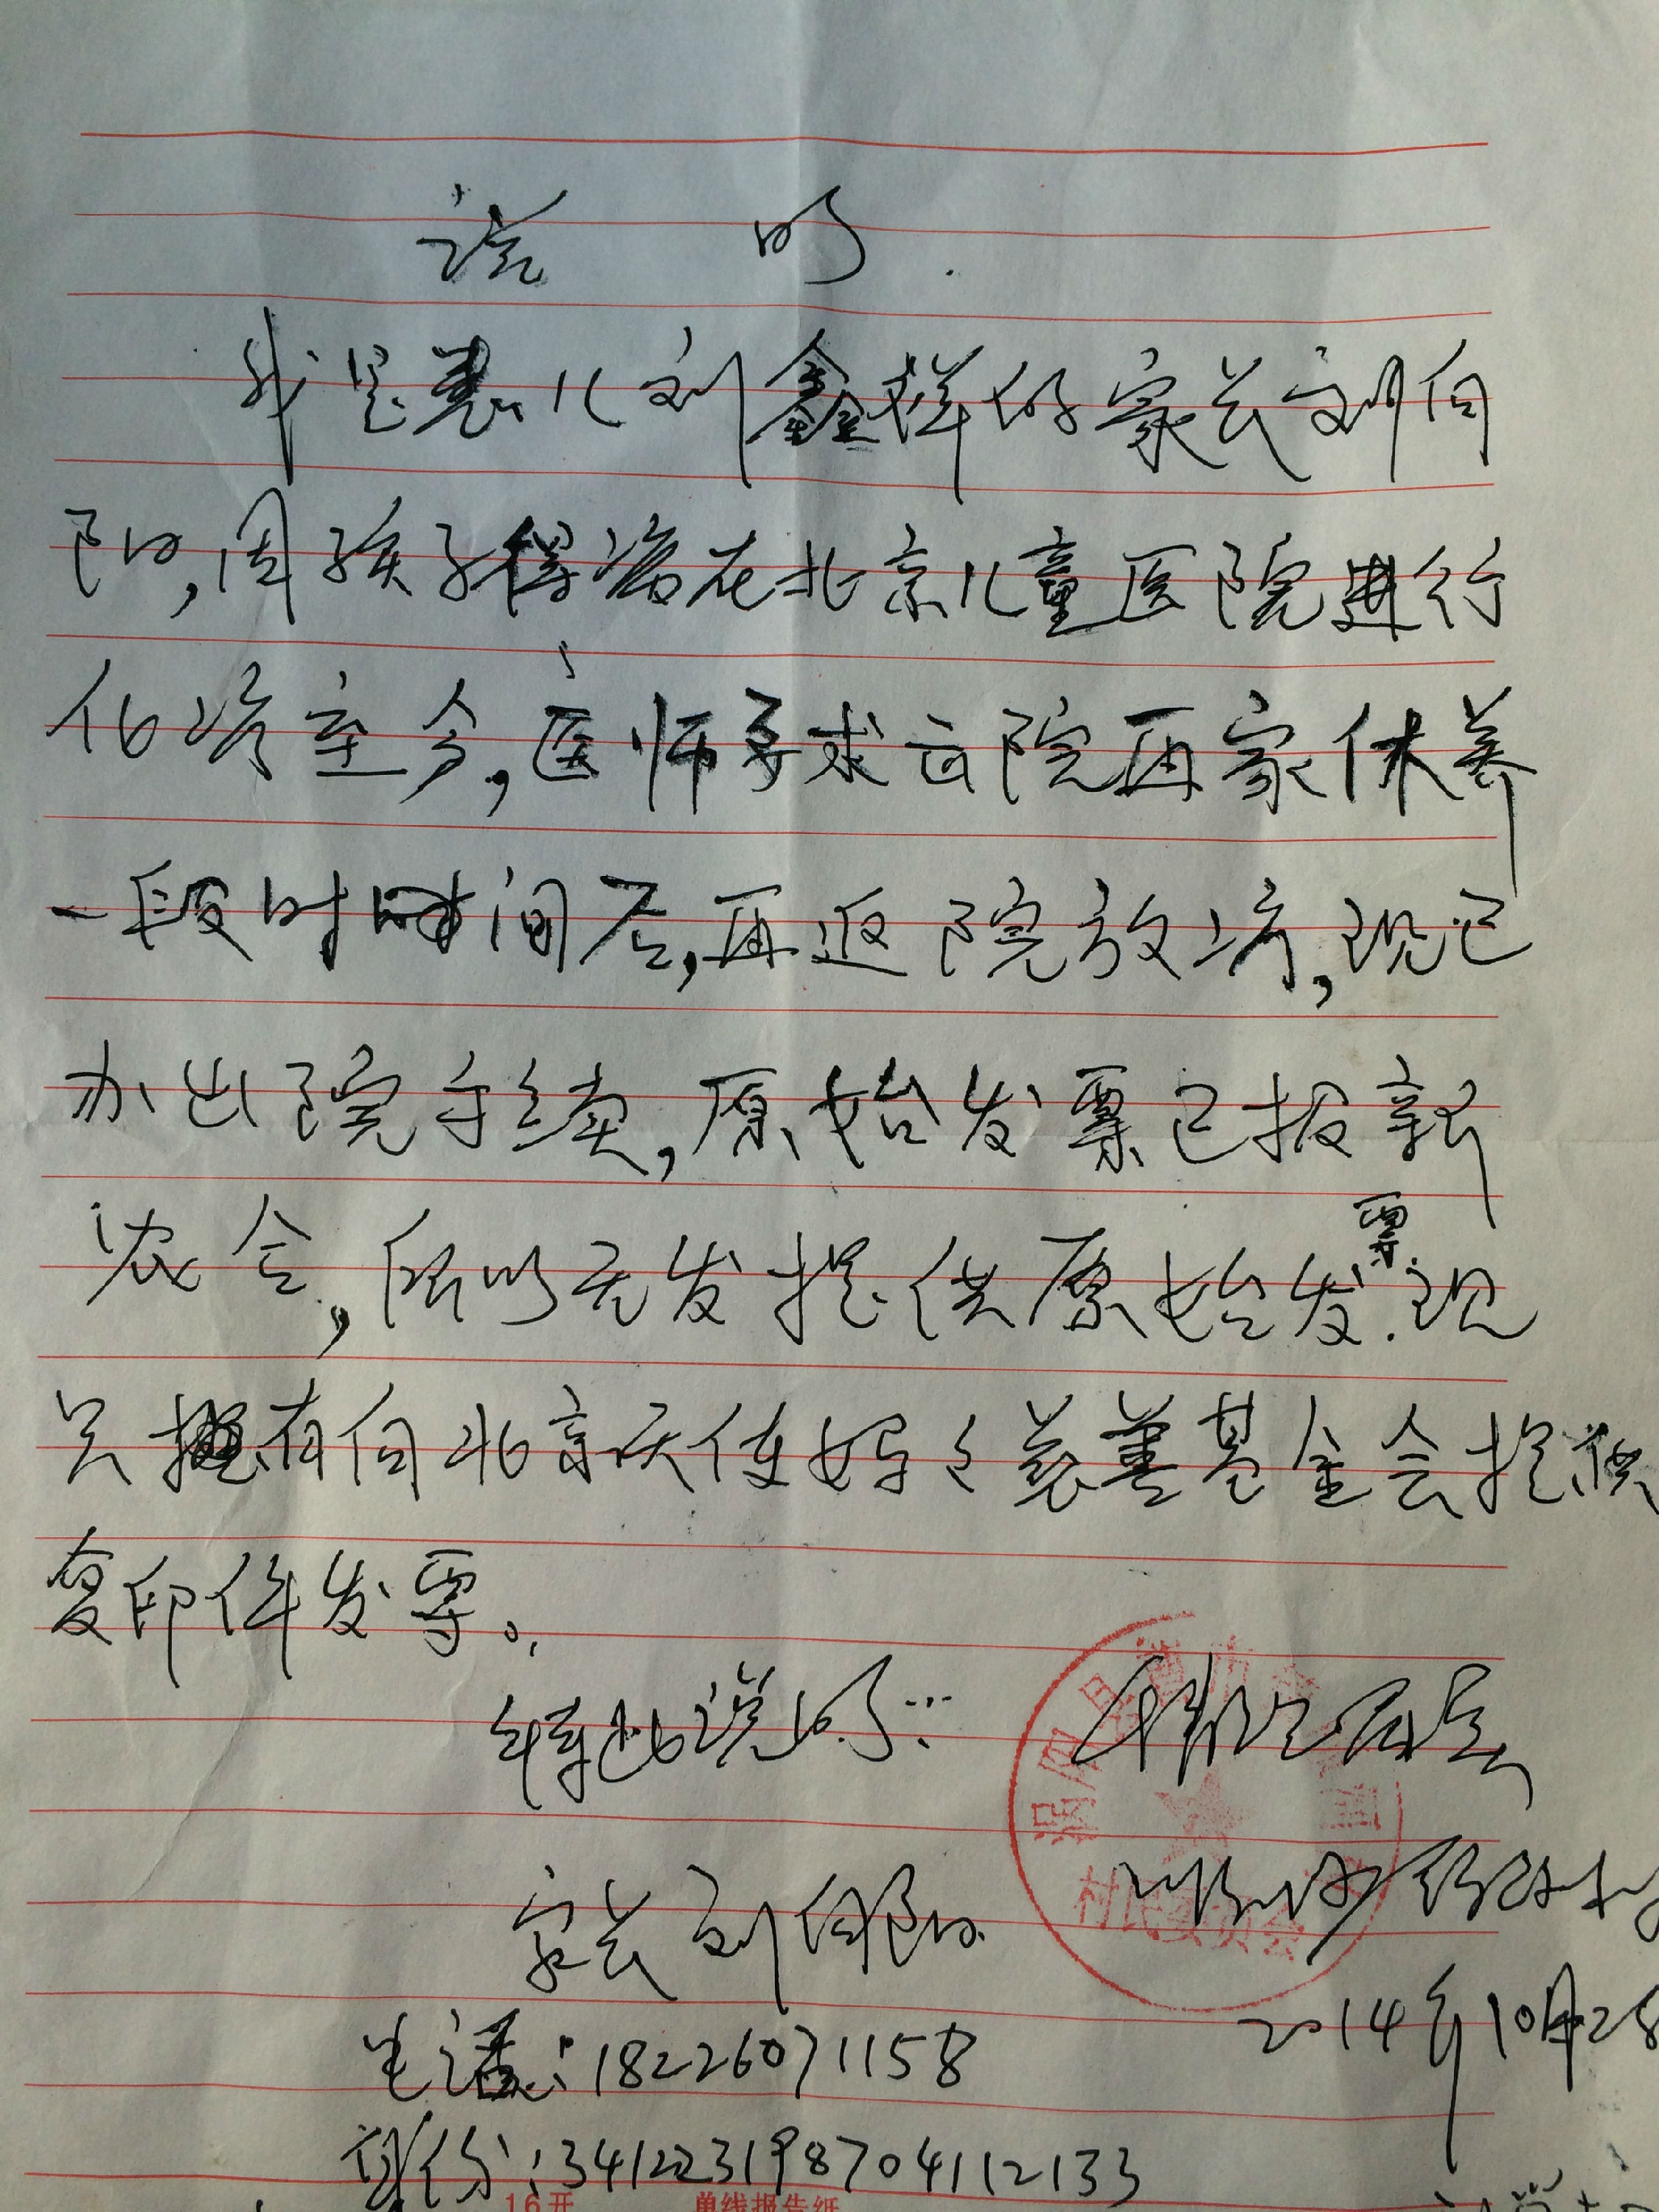 说 明
我是患儿刘鑫祥的家长刘向
阳,因孩子得病在北京儿童医院进行
化疗至今,医师要求出院再家休养
一段时间后,再返院放疗,现已
办出院手续,原始发票已报新
农合,所以无发提供原始发票.现
只有向北京天使妈妈慈善基金会提供
复印件发票。
特此说明:
情况属实
家长刘向阳
村民委员会
2014年10月28
电话:18226071158
身份:341223198704112133
16开 单线报告纸